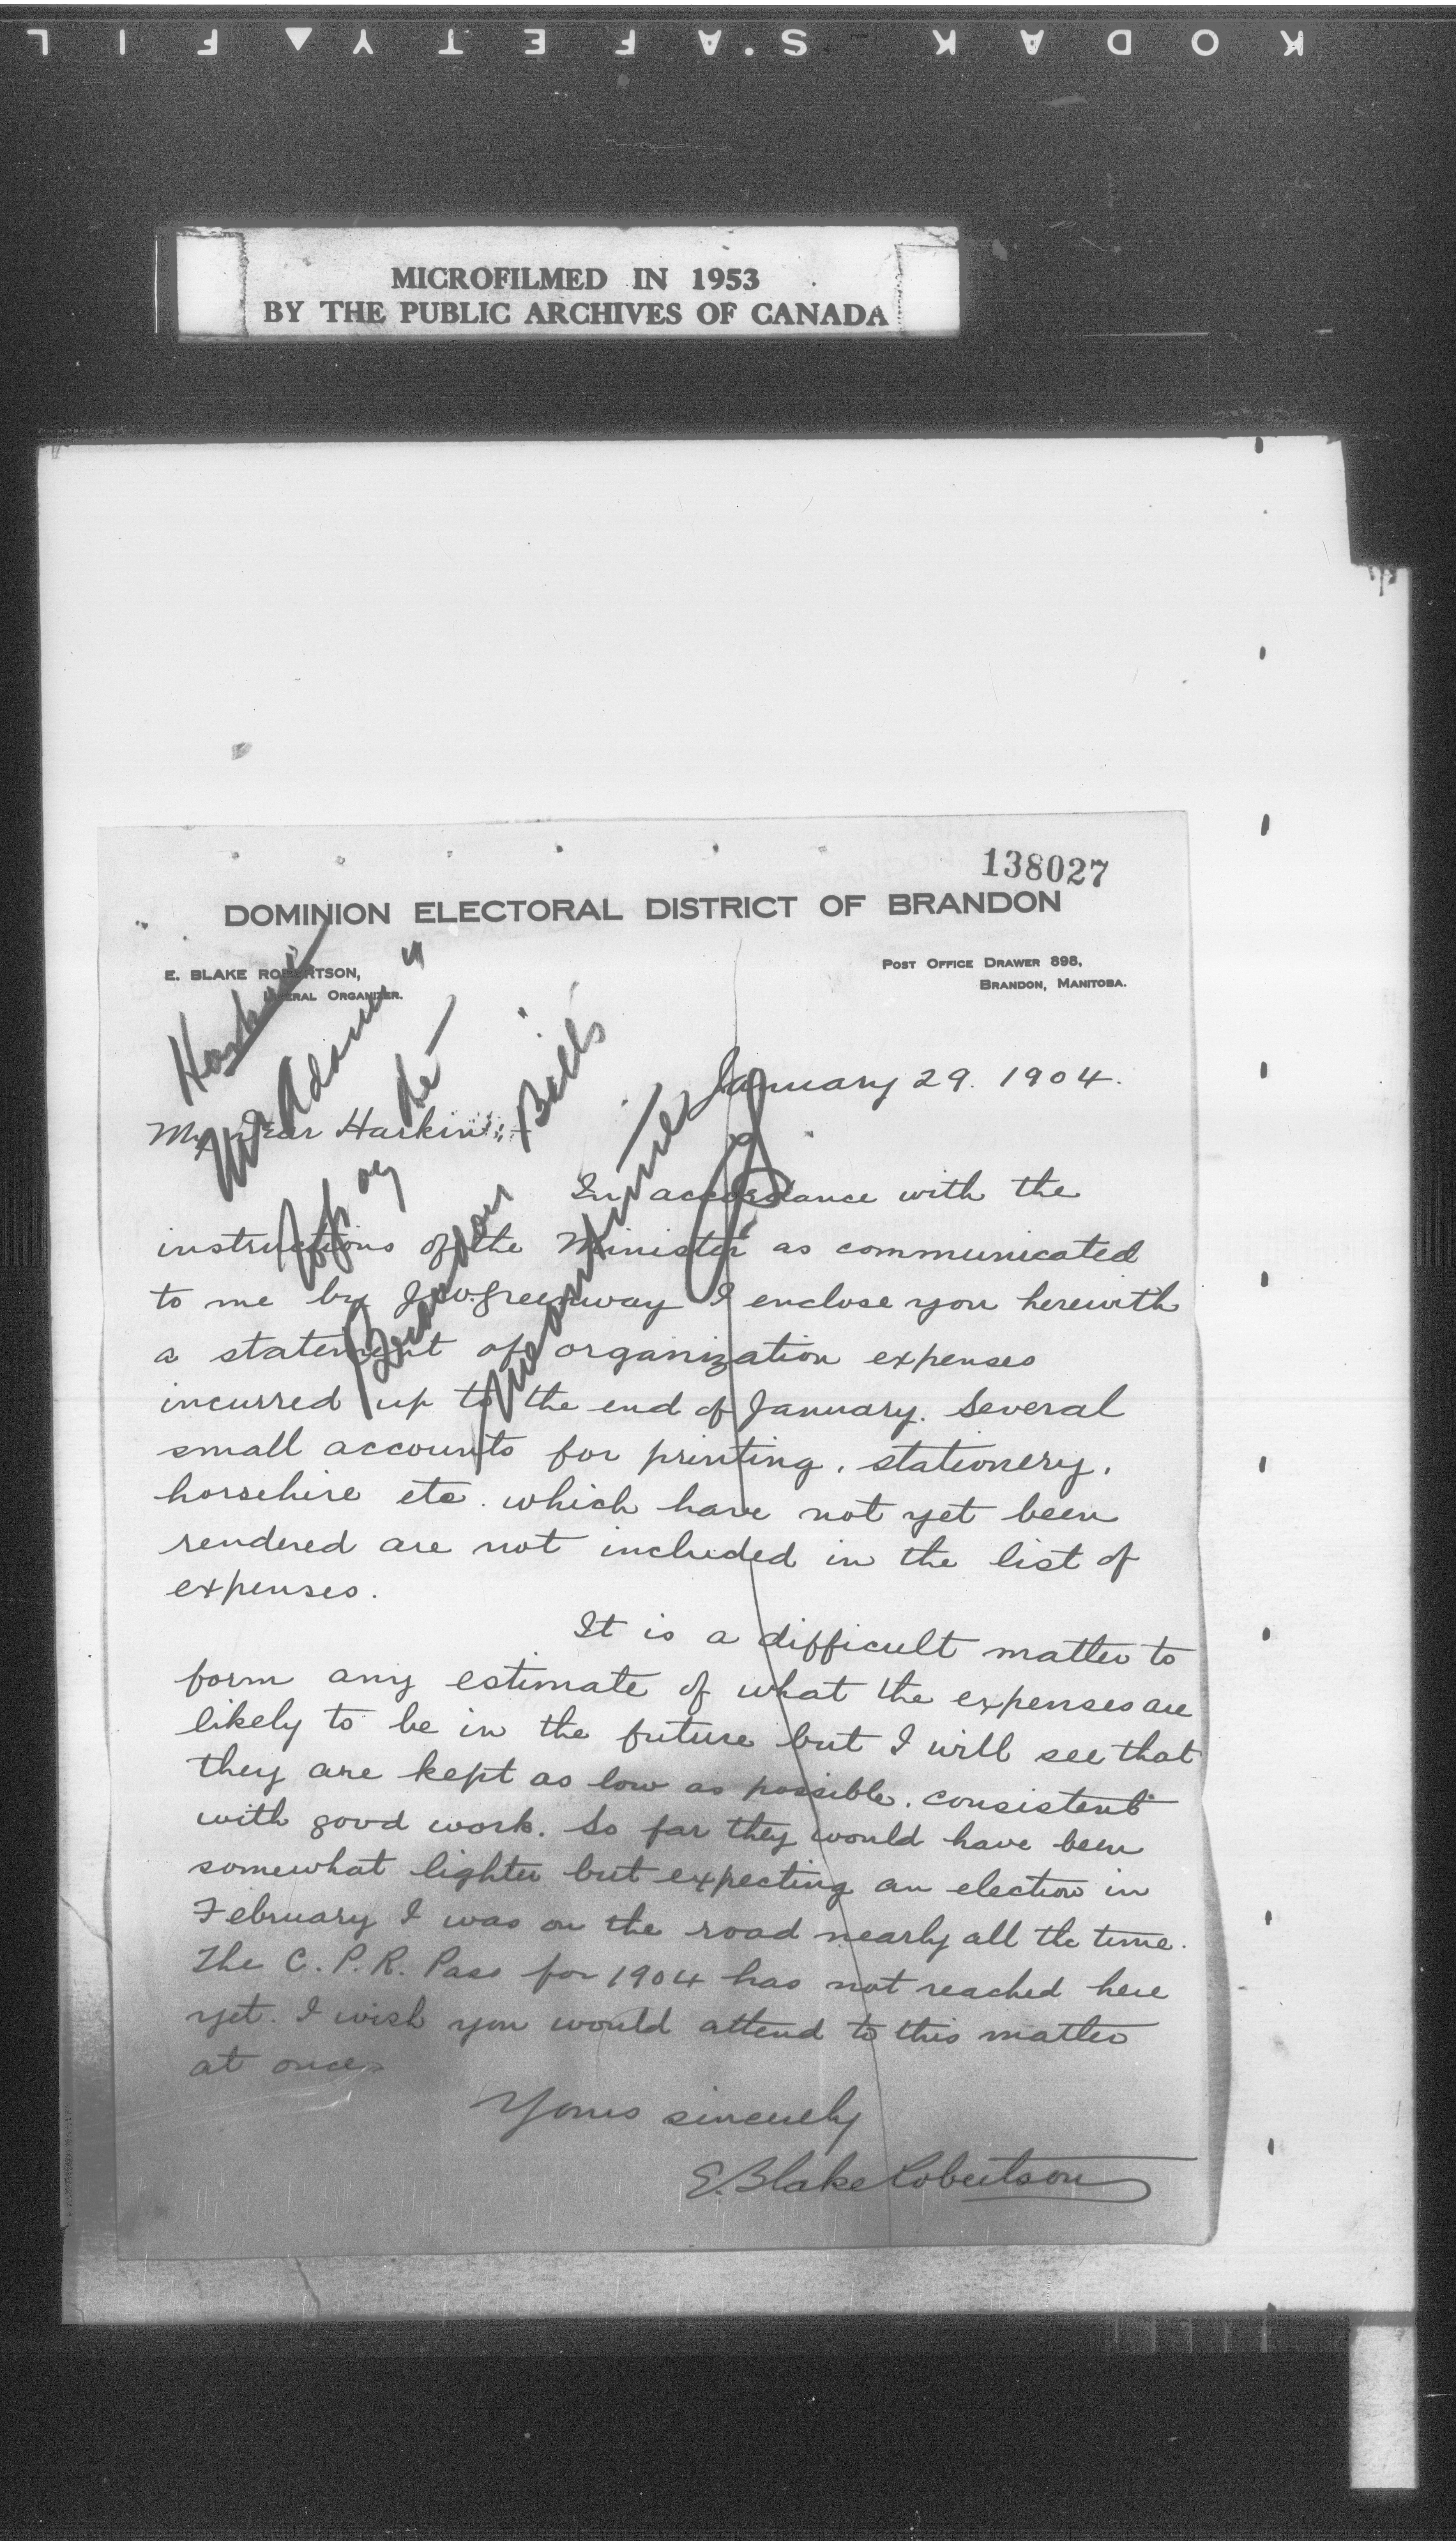 KODAK SAFETY FIL
MICROFILMED IN 1953
BY THE PUBLIC ARCHIVES OF CANADA
138027
DOMINION ELECTORAL DISTRICT OF BRANDON
E. BLAKE ROBERTSON,
LIBERAL ORGANIZER.
POST OFFICE DRAWER 898,
BRANDON, MANITOBA.
Harkin
Mr Adams
Brandon Bills
January 29. 1904.
My Dear Harkin:-
In accordance with the
instructions of the Minister as communicated
to me by J.W. Greenway I enclose you herewith
a statement of organization expenses
incurred up to the end of January. Several
small accounts for printing, stationery,
horsehire etc. which have not yet been
rendered are not included in the list of
expenses.
It is a difficult matter to
form any estimate of what the expenses are
likely to be in the future but I will see that
they are kept as low as possible, consistent
with good work. So far they would have been
somewhat lighter but expecting an election in
February I was on the road nearly all the time.
The C.P.R. Pass for 1904 has not reached here
yet. I wish you would attend to this matter
at once.
Yours sincerely
E. Blake Robertson